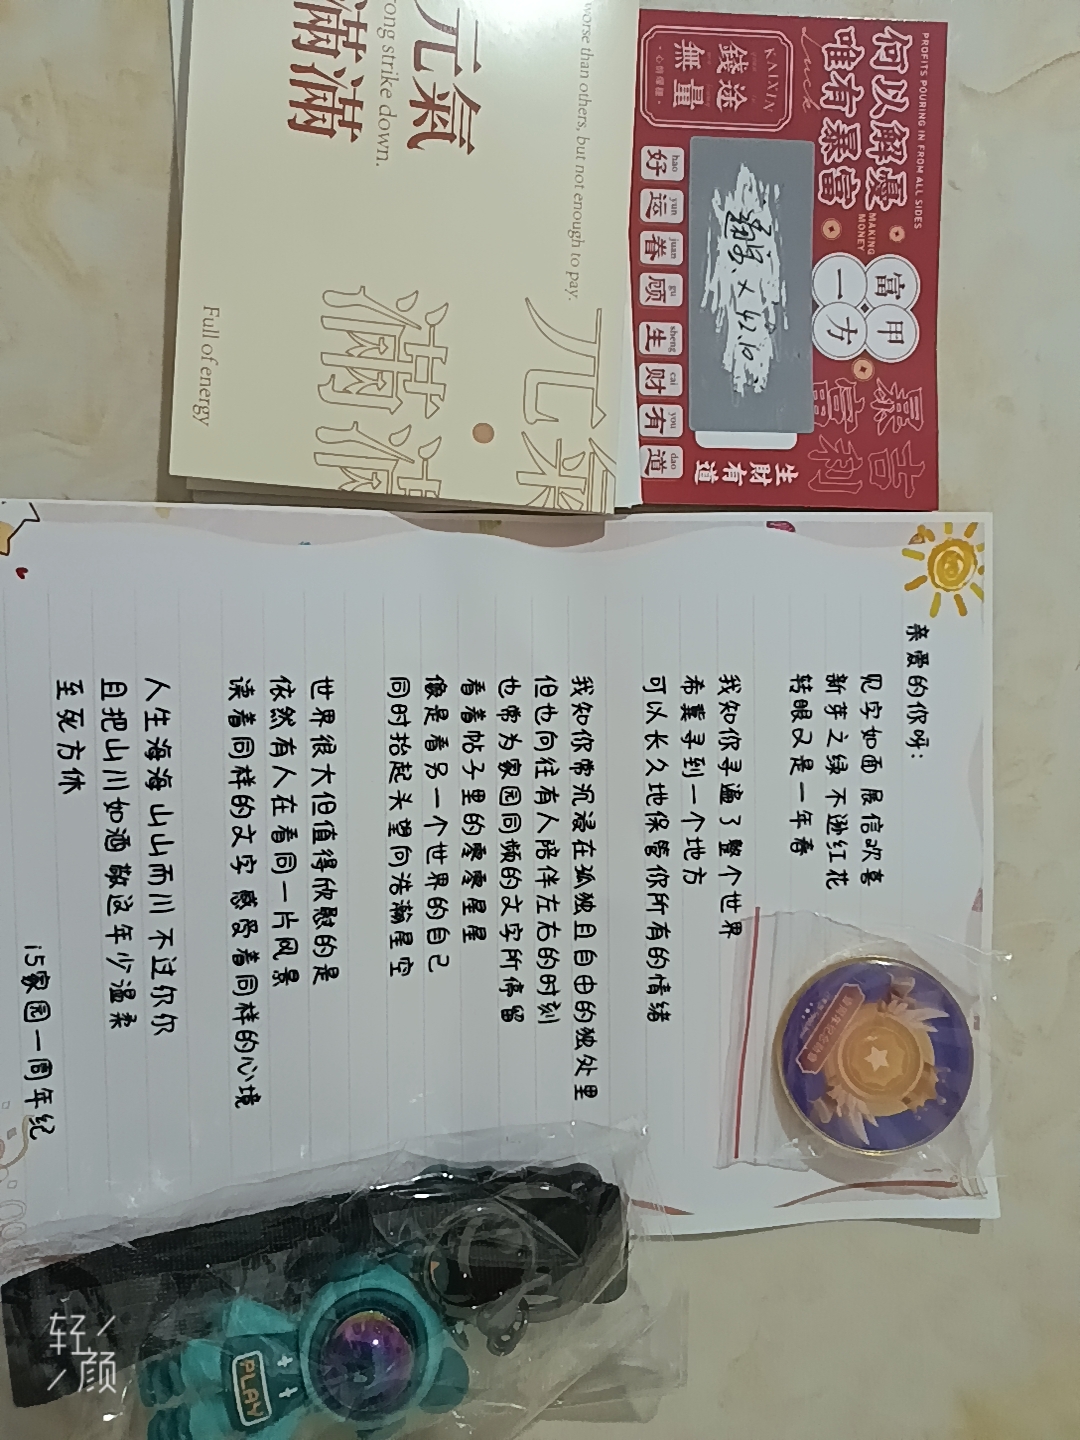 PROFITS POURING IN FROM ALL SIDES
何以解憂
唯有暴富
Luck
MAKING
MONEY
KAIXIN
錢途
無量
富甲
一方
暴富
吉利
生財有道
hao yun juan gu sheng cai you dao
好运眷顾生财有道
worse than others, but not enough to pay.
元氣
滿滿
rong strike down.
元氣
滿滿
Full of energy
亲爱的你呀：
见字如面 展信欢喜
新芽之绿 不逊红花
转眼又是一年春
我知你寻遍了整个世界
希冀寻到一个地方
可以长久地保管你所有的情绪
我知你常沉浸在孤独且自由的独处里
但也向往有人陪伴左右的时刻
也常为家园同频的文字所停留
看着帖子里的零零星星
像是看另一个世界的自己
同时抬起头望向浩瀚星空
世界很大但值得欣慰的是
依然有人在看同一片风景
读着同样的文字 感受着同样的心境
人生海海 山山而川 不过尔尔
且把山川如酒 敬这年少温柔
至死方休
i5家园一周年纪
PLAY
轻颜